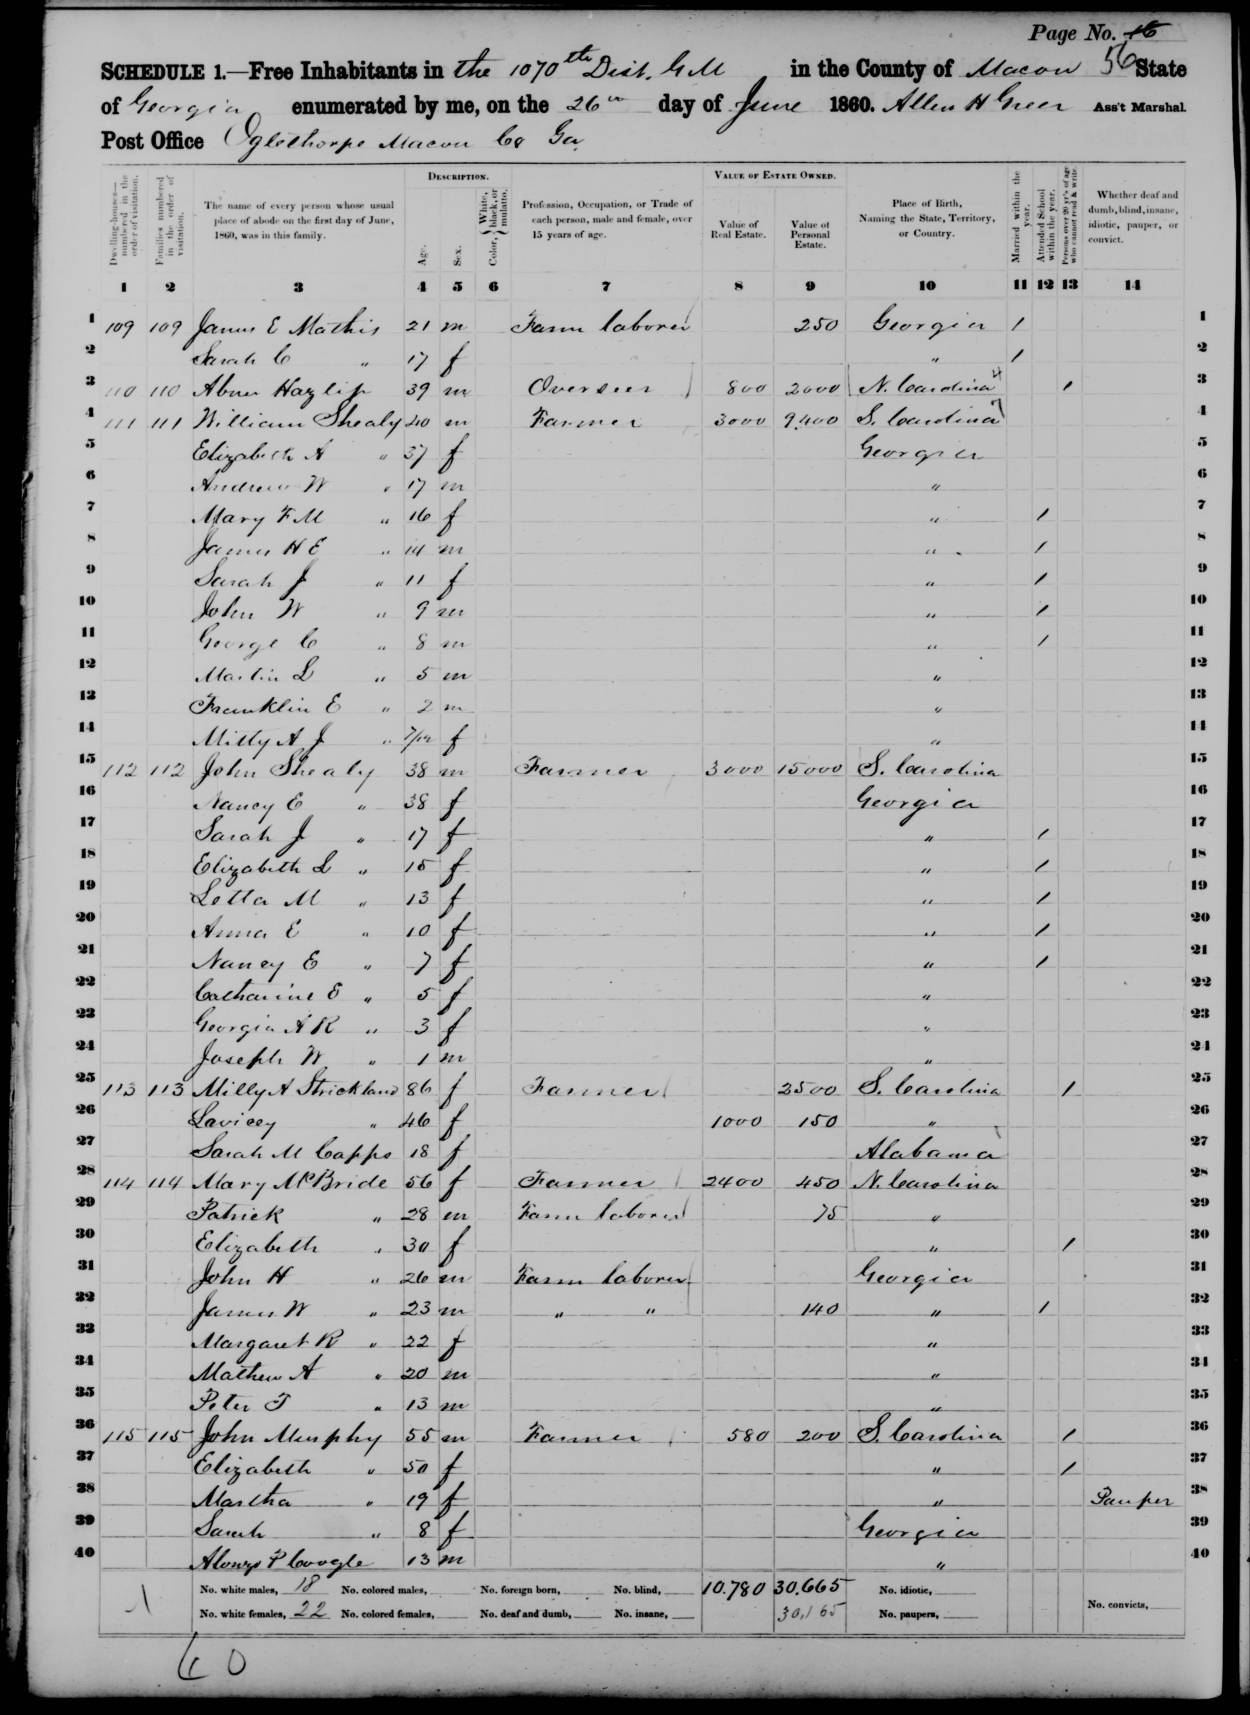 Page No. 16
56
SCHEDULE 1.—Free Inhabitants in the 1070th Dist. G M in the County of Macon State
of Georgia enumerated by me, on the 26th day of June 1860. Allen H Greer Ass't Marshal.
Post Office Oglethorpe Macon Co Ga
Dwelling-houses—numbered in the order of visitation.
Families numbered in the order of visitation.
The name of every person whose usual place of abode on the first day of June, 1860, was in this family.
DESCRIPTION.
Age.
Sex.
Color, White, black, or mulatto.
Profession, Occupation, or Trade of each person, male and female, over 15 years of age.
VALUE OF ESTATE OWNED.
Value of Real Estate.
Value of Personal Estate.
Place of Birth, Naming the State, Territory, or Country.
Married within the year.
Attended School within the year.
Persons over 20 y'rs of age who cannot read & write.
Whether deaf and dumb, blind, insane, idiotic, pauper, or convict.
1 2 3 4 5 6 7 8 9 10 11 12 13 14
1 109 109 James E Mathis 21 m Farm laborer 250 Georgia 1 1
2 Sarah C " 17 f " 1 2
3 110 110 Abner Hazlip 39 m Overseer 800 2000 N. Carolina 1 3
4 111 111 William Shealy 40 m Farmer 3000 9,400 S. Carolina 4
5 Elizabeth A " 37 f Georgia 5
6 Andrew W " 17 m " 6
7 Mary F M " 16 f " 1 7
8 James H E " 14 m " 1 8
9 Sarah J " 11 f " 1 9
10 John W " 9 m " 1 10
11 George C " 8 m " 1 11
12 Martin L " 5 m " 12
13 Franklin E " 2 m " 13
14 Milly A J " 7/12 f " 14
15 112 112 John Shealy 38 m Farmer 3000 15000 S. Carolina 15
16 Nancy E " 38 f Georgia 16
17 Sarah J " 17 f " 1 17
18 Elizabeth L " 15 f " 1 18
19 Letta M " 13 f " 1 19
20 Anna E " 10 f " 1 20
21 Nancy E " 7 f " 1 21
22 Catharine E " 5 f " 22
23 Georgia A R " 3 f " 23
24 Joseph W " 1 m " 24
25 113 113 Milly A Strickland 86 f Farmer 2500 S. Carolina 1 25
26 Lavicey " 46 f 1000 150 " 26
27 Sarah M Capps 18 f Alabama 27
28 114 114 Mary McBride 56 f Farmer 2400 450 N. Carolina 28
29 Patrick " 28 m Farm laborer 75 " 29
30 Elizabeth " 30 f " 1 30
31 John H " 26 m Farm laborer Georgia 31
32 James W " 23 m " " 140 " 1 32
33 Margaret R " 22 f " 33
34 Mathew A " 20 m " 34
35 Peter T " 13 m " 35
36 115 115 John Murphy 55 m Farmer 580 200 S. Carolina 1 36
37 Elizabeth " 50 f " 1 37
38 Martha " 19 f " Pauper 38
39 Sarah " 8 f Georgia 39
40 Alonzo P Coogle 13 m " 40
No. white males, 18 No. colored males, No. foreign born, No. blind, 10.780 30,665 No. idiotic,
No. white females, 22 No. colored females, No. deaf and dumb, No. insane, 30,165 No. paupers, No. convicts,
60